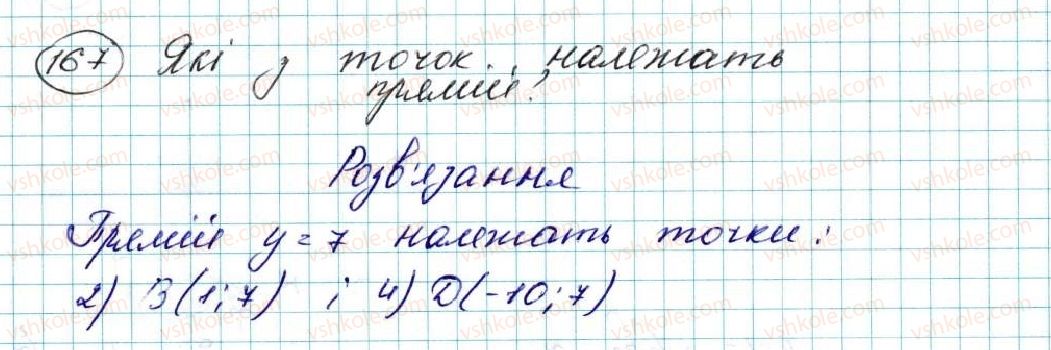 167 Які з точок.. належать
прямій?
Розв'язання
Прямій y = 7 належать точки:
2) B(1; 7) ; 4) D(-10; 7)